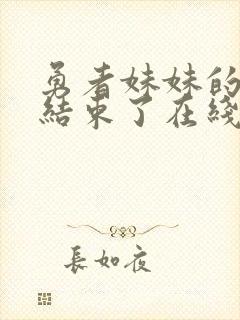 勇者妹妹的
結束了在綫
長如夜